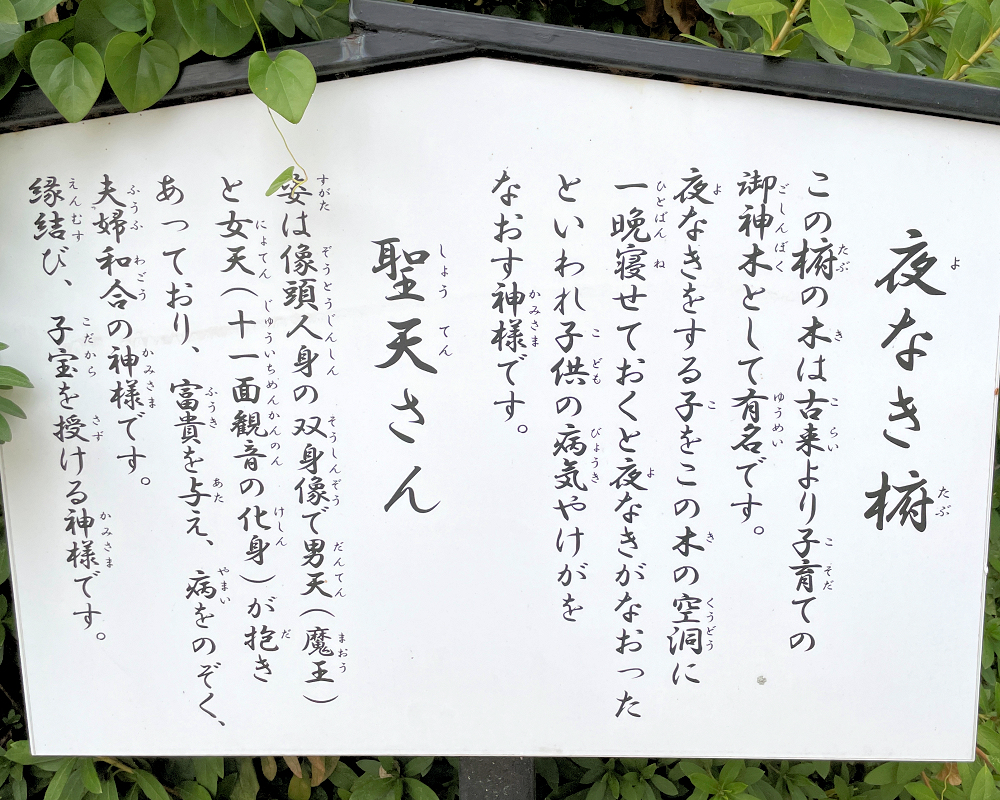 夜なき椨
この椨の木は古来より子育ての
御神木として有名です。
夜なきをする子をこの木の空洞に
一晩寝せておくと夜なきがなおった
といわれ子供の病気やけがを
なおす神様です。
聖天さん
姿は像頭人身の双身像で男天(魔王)
と女天(十一面観音の化身)が抱き
あっており、富貴を与え、病をのぞく、
夫婦和合の神様です。
縁結び、子宝を授ける神様です。